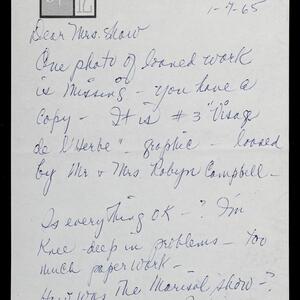 1-7-65
Dear Mrs. Shaw
One photo of loaned work
is missing - you have a
copy - It is #3 "Visage
de l'Herbe" - graphic - loaned
by Mr + Mrs Robyn Campbell -
Is everything OK - ? I'm
Knee-deep in problems - too
much paper work -
How was the Marisol show - ?